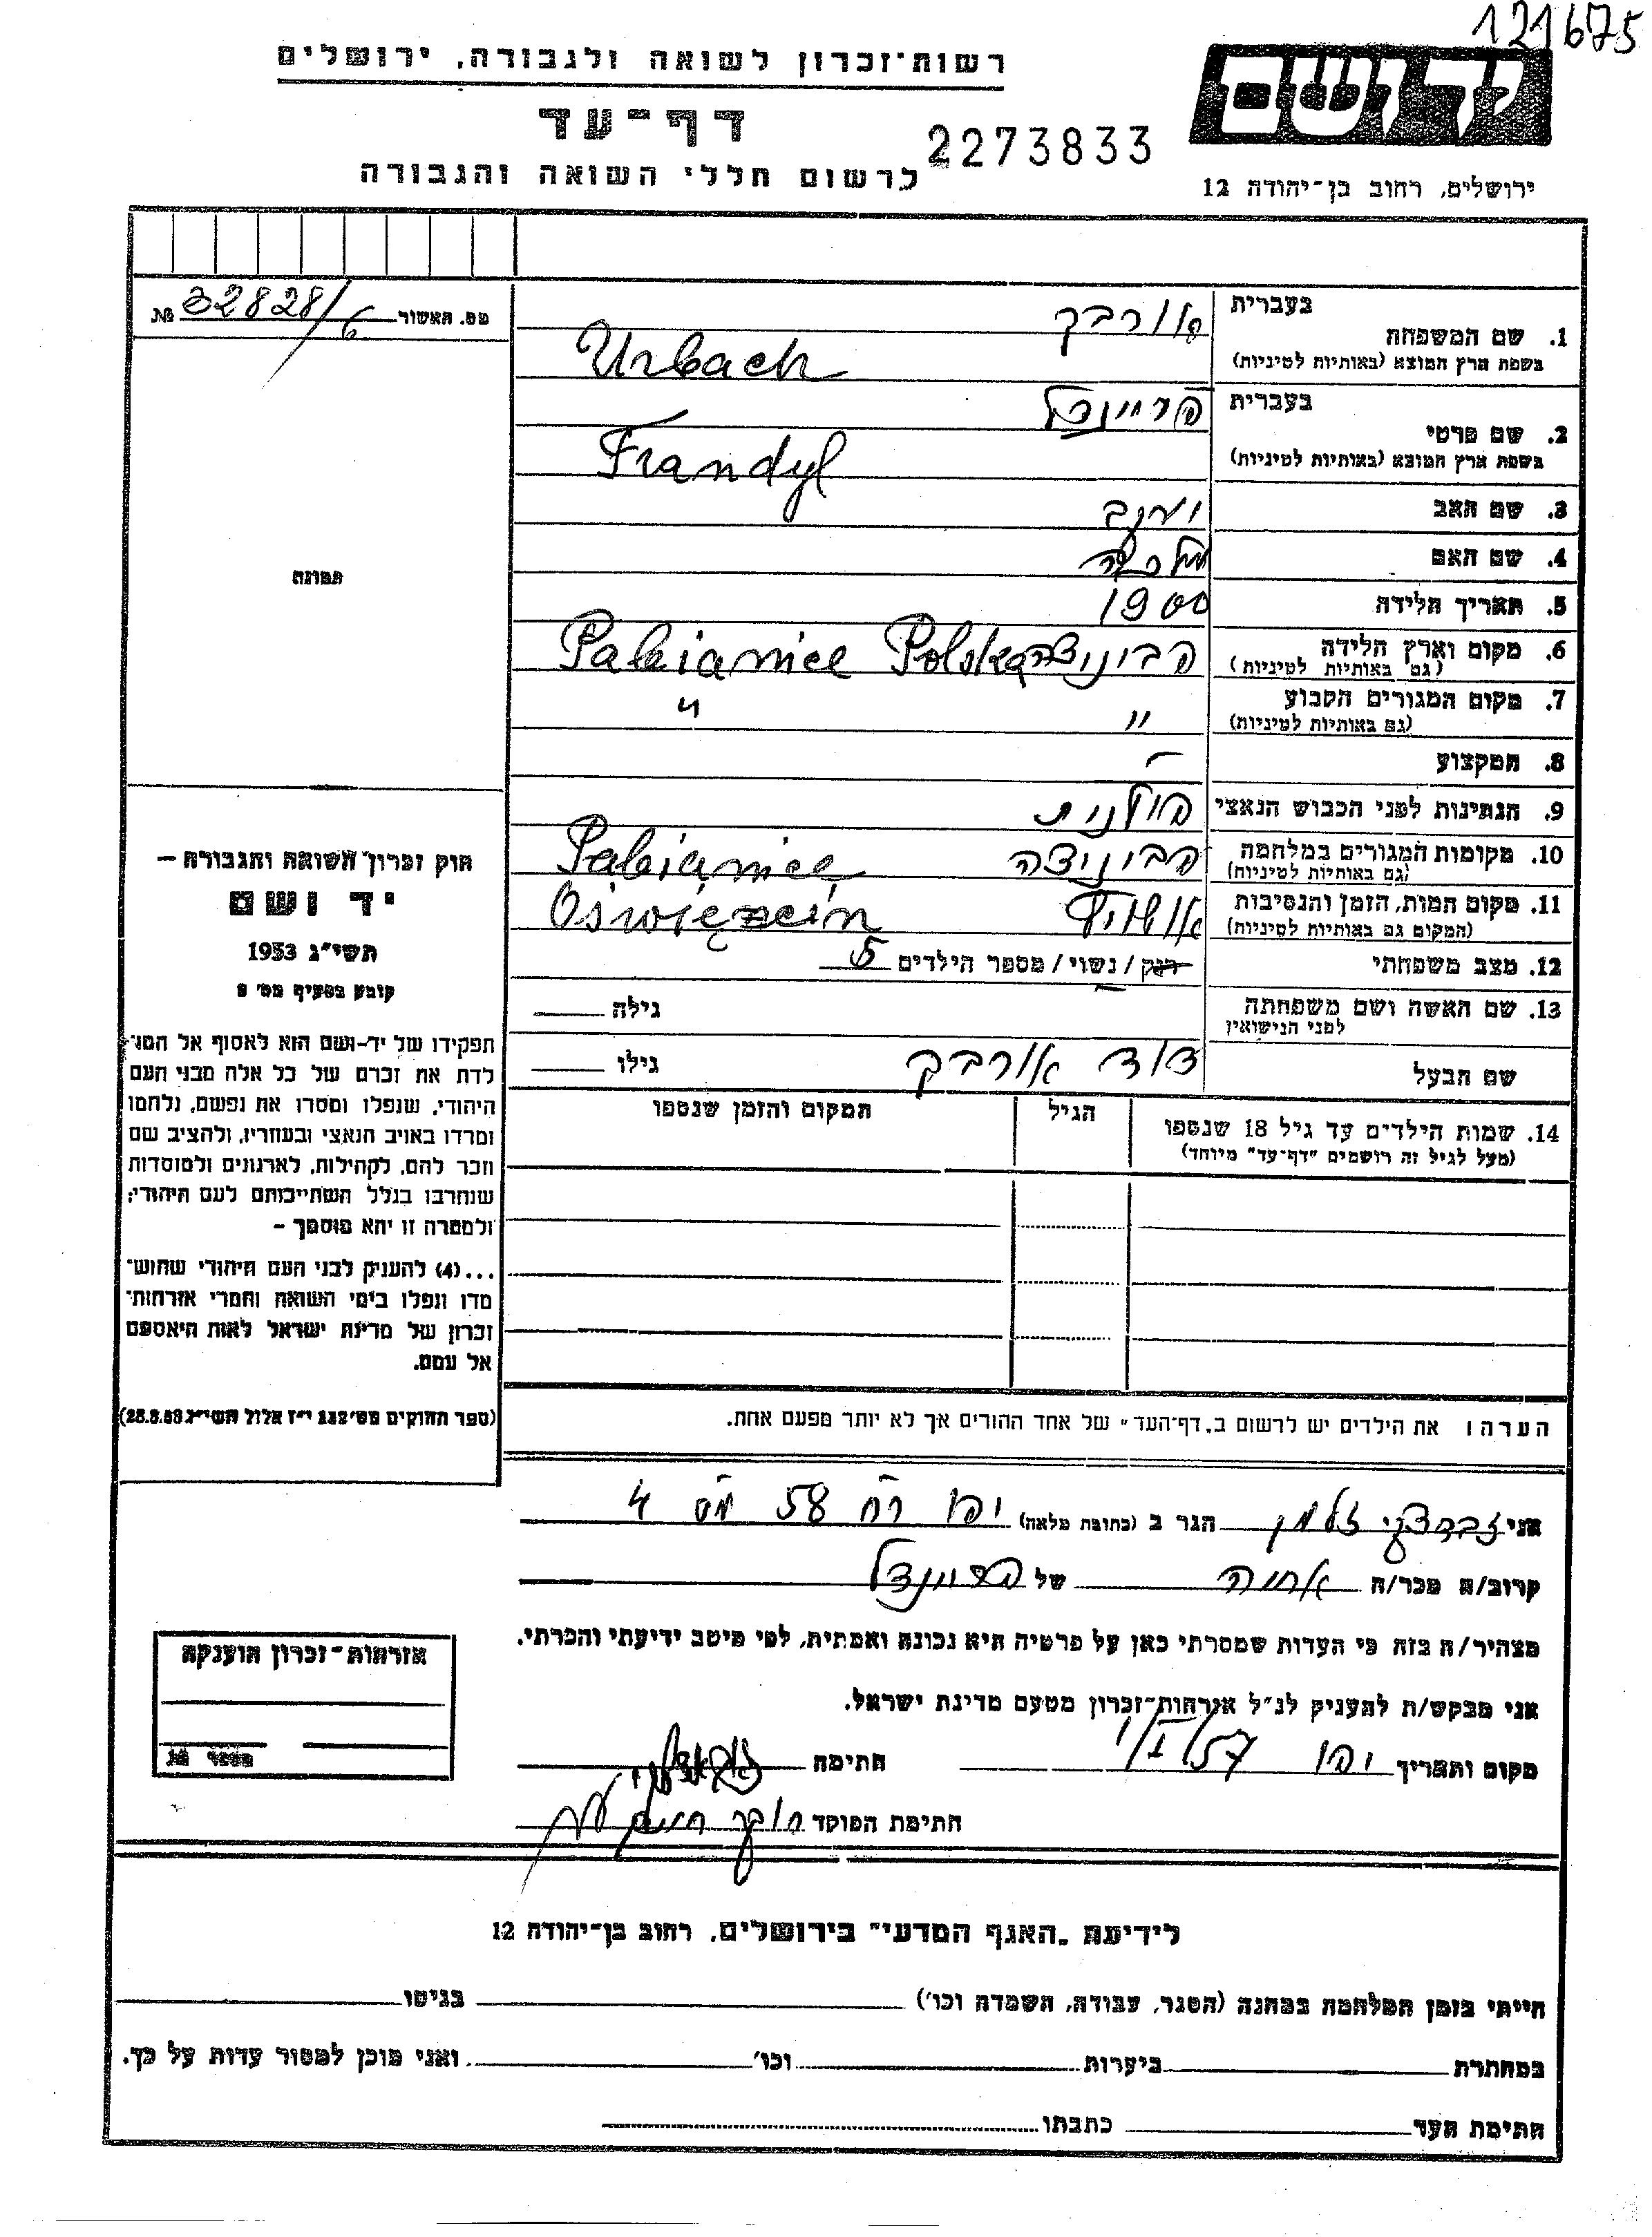 121675
רשות־זכרון לשואה ולגבורה, ירושלים
ידושם
דף־עד
2273833
לרשום חללי השואה והגבורה
ירושלים, רחוב בן־יהודה 12
מס. האשור 32828/6 №
תמונה
חוק זכרון השואה והגבורה —
יד ושם
תשי״ג 1953
קובע בסעיף מס׳ 2
תפקידו של יד־ושם הוא לאסוף אל המו־
לדת את זכרם של כל אלה מבני העם
היהודי, שנפלו ומסרו את נפשם, נלחמו
ומרדו באויב הנאצי ובעוזריו, ולהציב שם
וזכר להם, לקהילות, לארגונים ולמוסדות
שנחרבו בגלל השתייכותם לעם היהודי;
ולמטרה זו יהא מוסמך —
...(4) להעניק לבני העם היהודי שהוש־
מדו ונפלו בימי השואה והמרי אזרחות־
זכרון של מדינת ישראל לאות היאספם
אל עמם.
(ספר החוקים מס׳ 132 י״ז אלול תשי״ג 28.8.53)
בעברית אורבך
1. שם המשפחה
בשפת ארץ המוצא (באותיות לטיניות) Urbach
בעברית
2. שם פרטי
בשפת ארץ המוצא (באותיות לטיניות) Frandyl
3. שם האב יעקב
4. שם האם
5. תאריך הלידה 1900
6. מקום וארץ הלידה פביניצה Pabianice Polska
(גם באותיות לטיניות)
7. מקום המגורים הקבוע " "
(גם באותיות לטיניות)
8. המקצוע –
9. הנתינות לפני הכבוש הנאצי פולנית
10. מקומות המגורים במלחמה פביניצה Pabianice
(גם באותיות לטיניות)
11. מקום המות, הזמן והנסיבות אושויץ Oświęzcin
(המקום גם באותיות לטיניות)
12. מצב משפחתי רווק / נשוי / מספר הילדים 5
13. שם האשה ושם משפחתה גילה
לפני הנישואין
שם הבעל דוד אורבך גילו
14. שמות הילדים עד גיל 18 שנספו הגיל המקום והזמן שנספו
(מעל לגיל זה רושמים "דף־עד" מיוחד)
הערה: את הילדים יש לרשום ב„דף־העד" של אחד ההורים אך לא יותר מפעם אחת.
אני זלמן הגר ב (כתובת מלאה) יפו רח 58 מס 4
קרוב/ה מכר/ה אחיה של פריינדל
מצהיר/ה בזה כי העדות שמסרתי כאן על פרטיה היא נכונה ואמתית, לפי מיטב ידיעתי והכרתי.
אני מבקש/ת להעניק לנ״ל אזרחות־זכרון מטעם מדינת ישראל.
מקום ותאריך יפו 1/I/57 חתימה
חתימת הפוקד
אזרחות־זכרון הוענקה
מספר №
לידיעת „האגף המדעי" בירושלים, רחוב בן־יהודה 12
הייתי בזמן המלחמה במחנה (הסגר, עבודה, השמדה וכו׳) בגיטו
במחתרת ביערות וכו׳ ואני מוכן למסור עדות על כך.
חתימת העד כתבתו